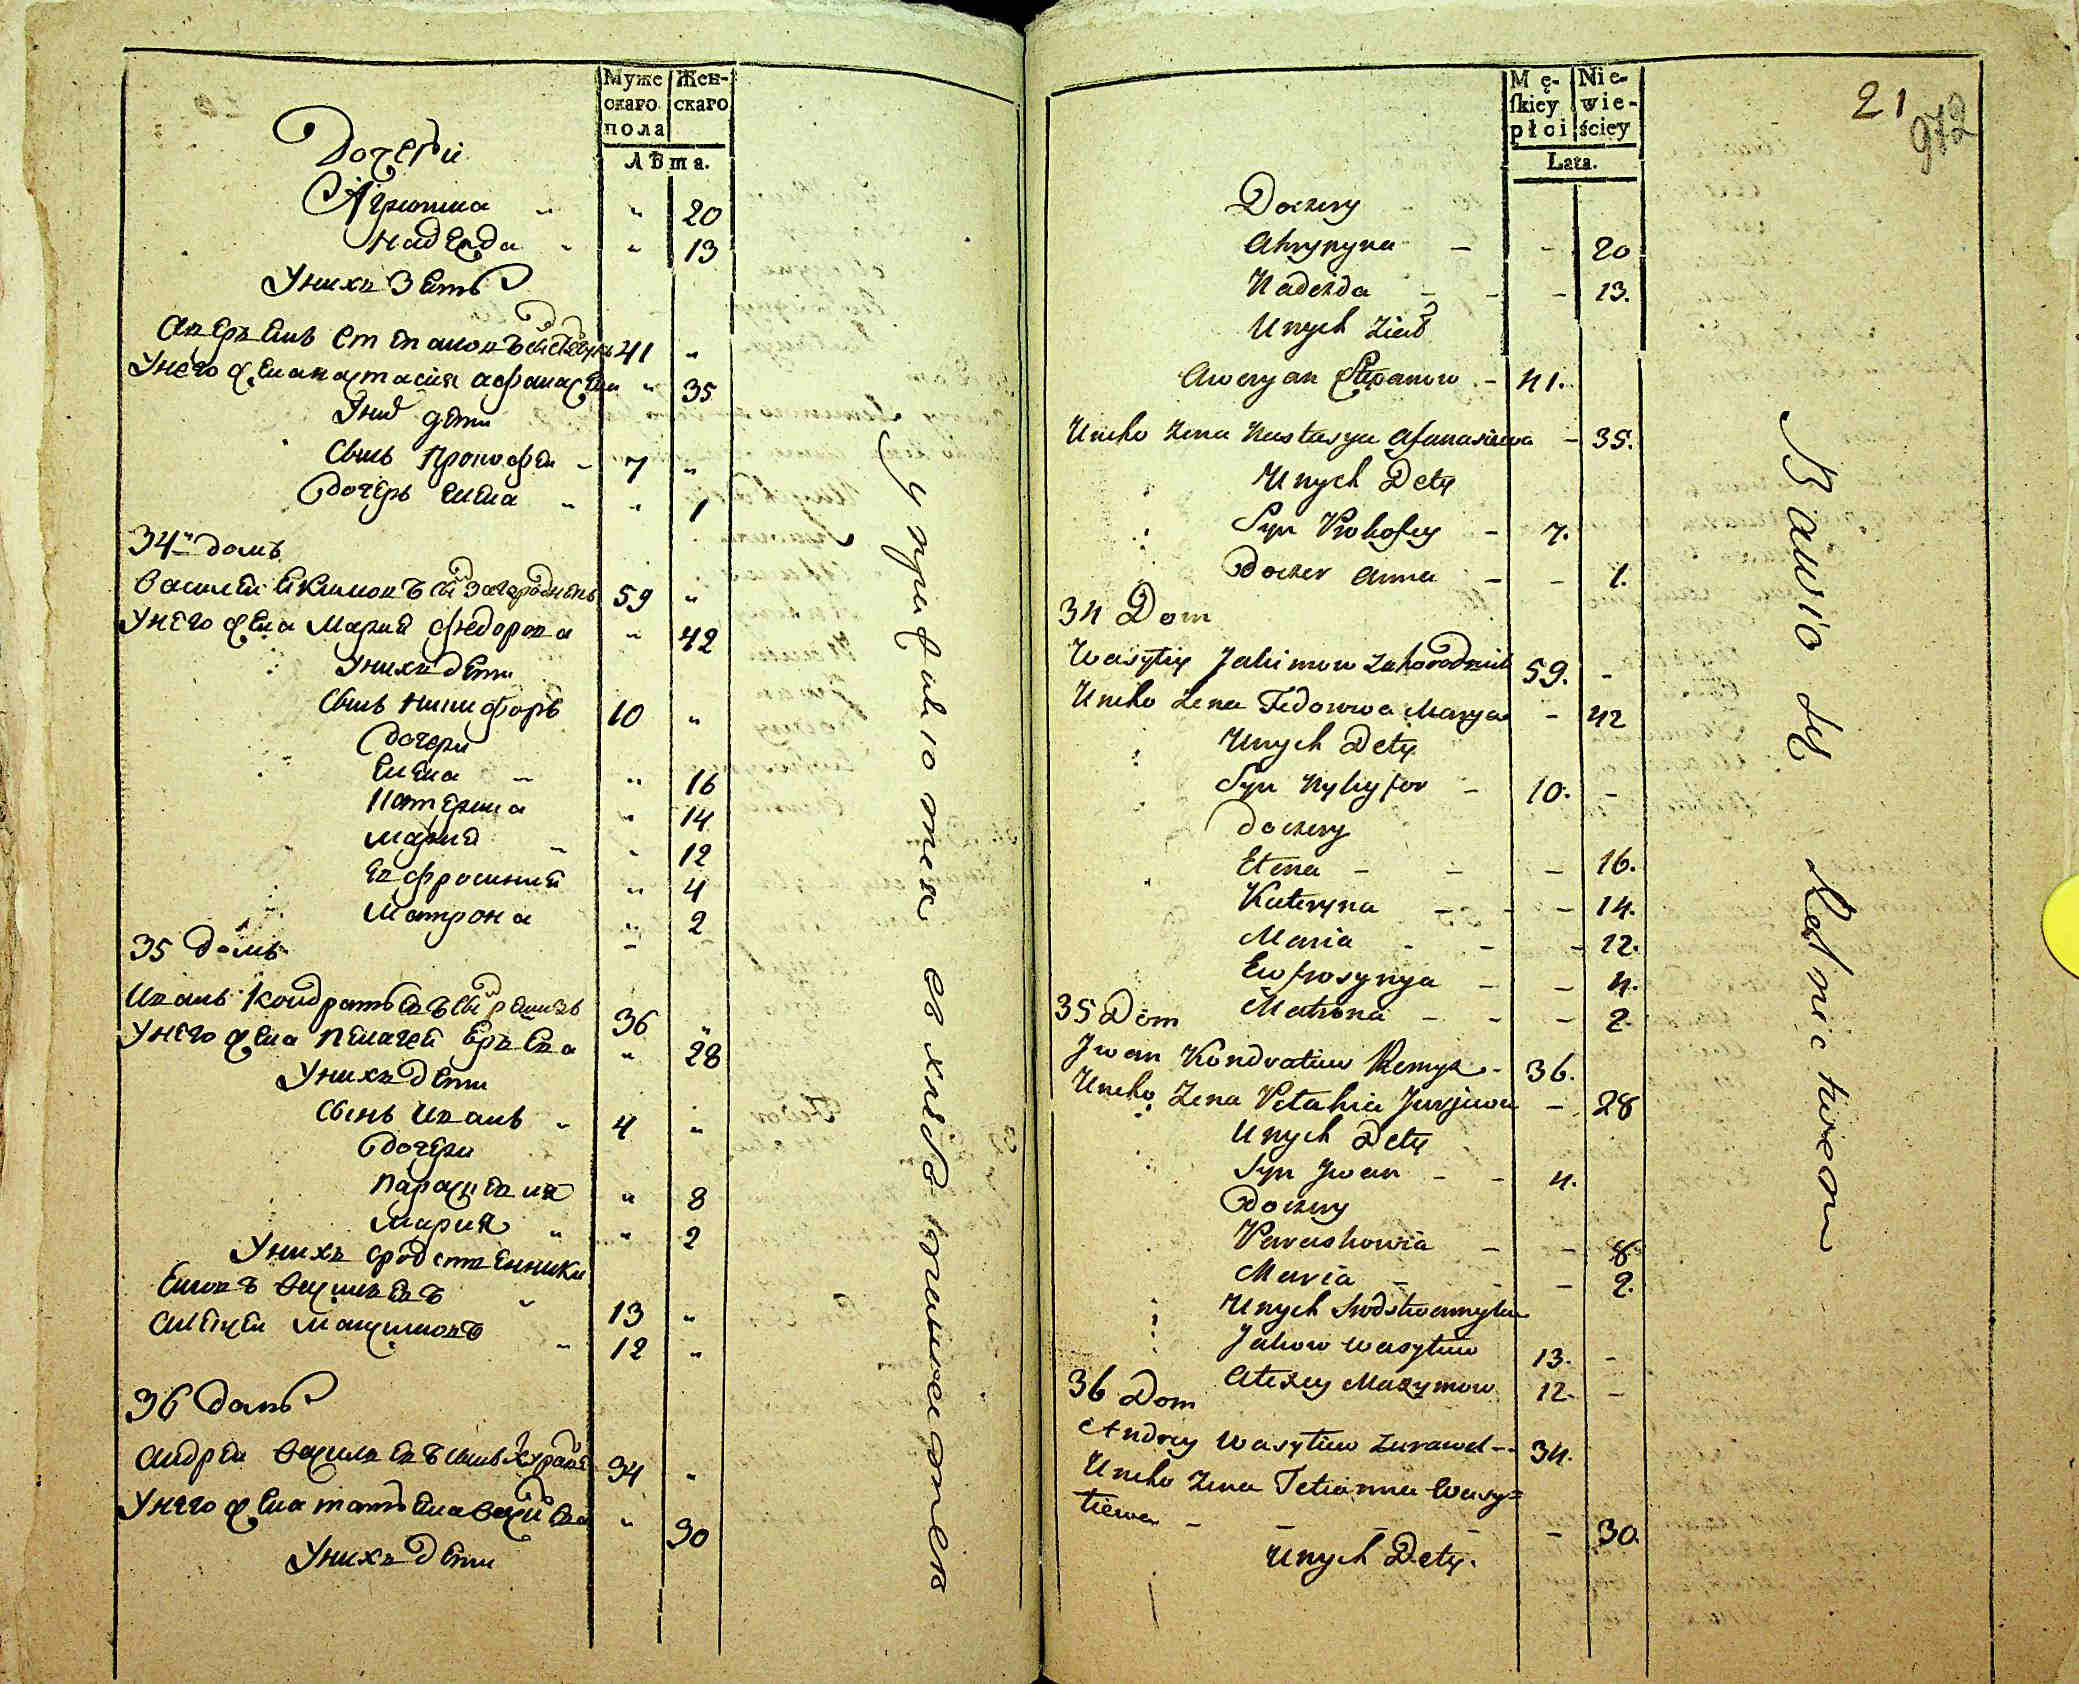 Муже
скаго
пола
Жен-
скаго
Лѣта.
Дочери
Агрипина " " 20
Надежда " " 13
У нихъ Зеть
Аверьянъ Степановъ 41 "
У него жена Анастасия Афанасьева " 35
У них дети
Сынъ Прокофей - 7 "
Дочерь Елена " " 1
34й домъ
Василей Екимовъ сынъ Загороднень 59 "
У него жена Мария Федорова " 42
У нихъ дети
Сынъ Никифоръ 10 "
Дочери
Елена " " 16
Катерина " 14
Мария " " 12
Евфросиния " 4
Матрона " 2
35 домъ
Иванъ Кондратьевъ сынъ Ремизъ 36 "
У него жена Пелагея Юрьева " 28
У нихъ дети
Сынъ Иванъ " 4 "
Дочери
Парасковия " 8
Мария " " 2
У нихъ сродственники
Ековъ Васильевъ " 13 "
Алексей Максимовъ " 12 "
36 домъ
Андрей Васильевъ сынъ Журавель 34 "
У него жена Татьяна Васильева " 30
У нихъ дети
упражняются в хлебопашестве
Mę-
ſkiey
płci
Nie-
wie-
ściey
Lata.
21
972
Doczery
Ahrypyna - - 20
Nadeżda - - - 13.
Unych Ziat
Aweryan Stepanow - 41.
Uneho Żena Nastasya Afanasiewa - 35.
Unych Dety
Syn Prokofey - 7.
Doczer Anna - - 1.
34 Dom
Wasyley Jakimow Zahorodnik 59. -
Uneho Żena Fedorowa Marya - 42
Unych Dety
Syn Nykyfor - 10. -
doczery
Elena - - - 16.
Kateryna - - - 14.
Maria - - - 12.
Ewfrosynya - - 4.
Matrona - - - 2.
35 Dom
Jwan Kondratiew Remyz - 36.
Uneho Żena Pelahia Jurjewa - 28
Unych Dety
Syn Jwan - - 4.
Doczery
Paraskowia - - 8
Maria - - - 2.
Unych Srodstwennyky
Jakow Wasylew 13. -
Alexey Maxymow 12. -
36 Dom
Andrey Wasylew Żurawel - - 34.
Uneho Żena Tetianna Wasy=
lewa - - - - - 30.
Unych Dety.
Bawio się Rolnictwem